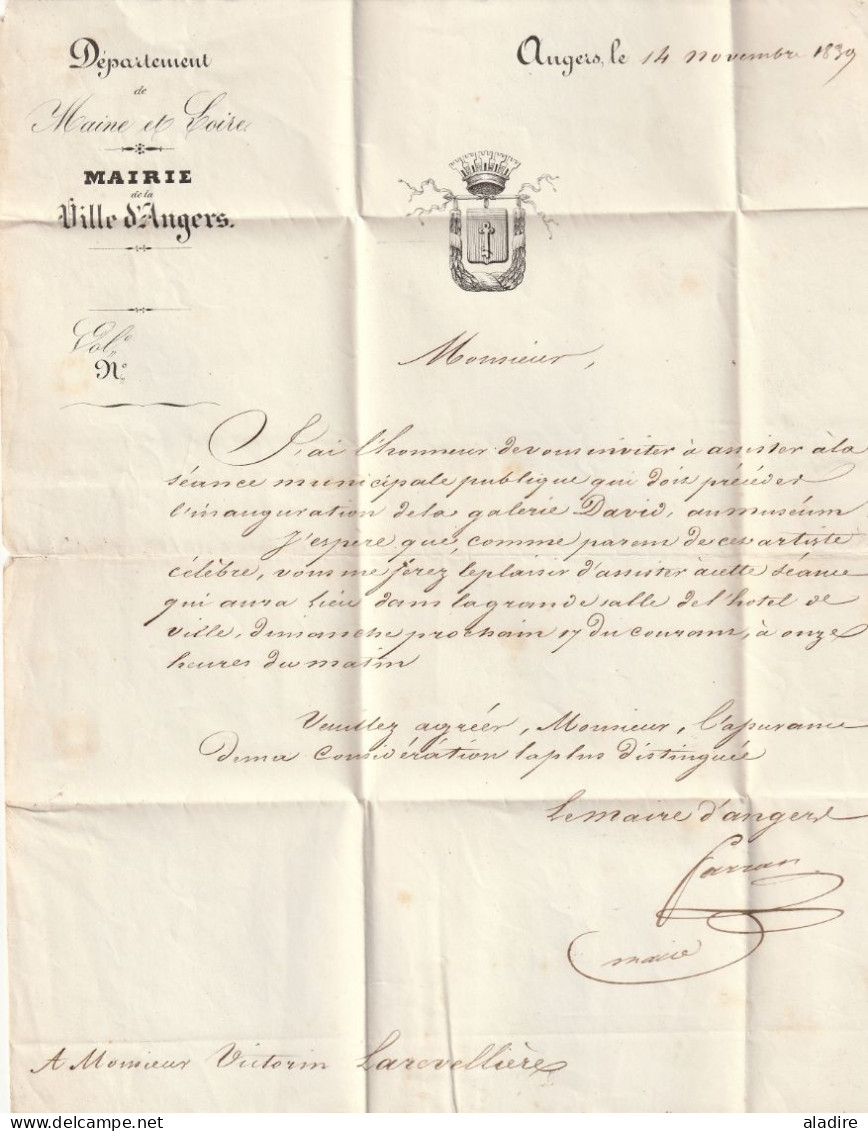 Département
de
Maine et Loire
MAIRIE
de la
Ville d'Angers.
Angers, le 14 novembre 1839
Vol.
N°
Monsieur,
J'ai l'honneur de vous inviter à assister à la
séance municipale publique qui doit précéder
l'inauguration de la galerie David, au muséum
J'espere que, comme parent de cet artiste
célèbre, vous me ferez le plaisir d'assister à cette séance
qui aura lieu dans la grande salle de l'hotel de
ville, dimanche prochain 17 du courant, à onze
heures du matin
Veuillez agréer, Monsieur, l'assurance
de ma considération la plus distinguée
Le maire d'angers
farran
maire
A Monsieur Victorin Larevellière
delcampe.net
aladire